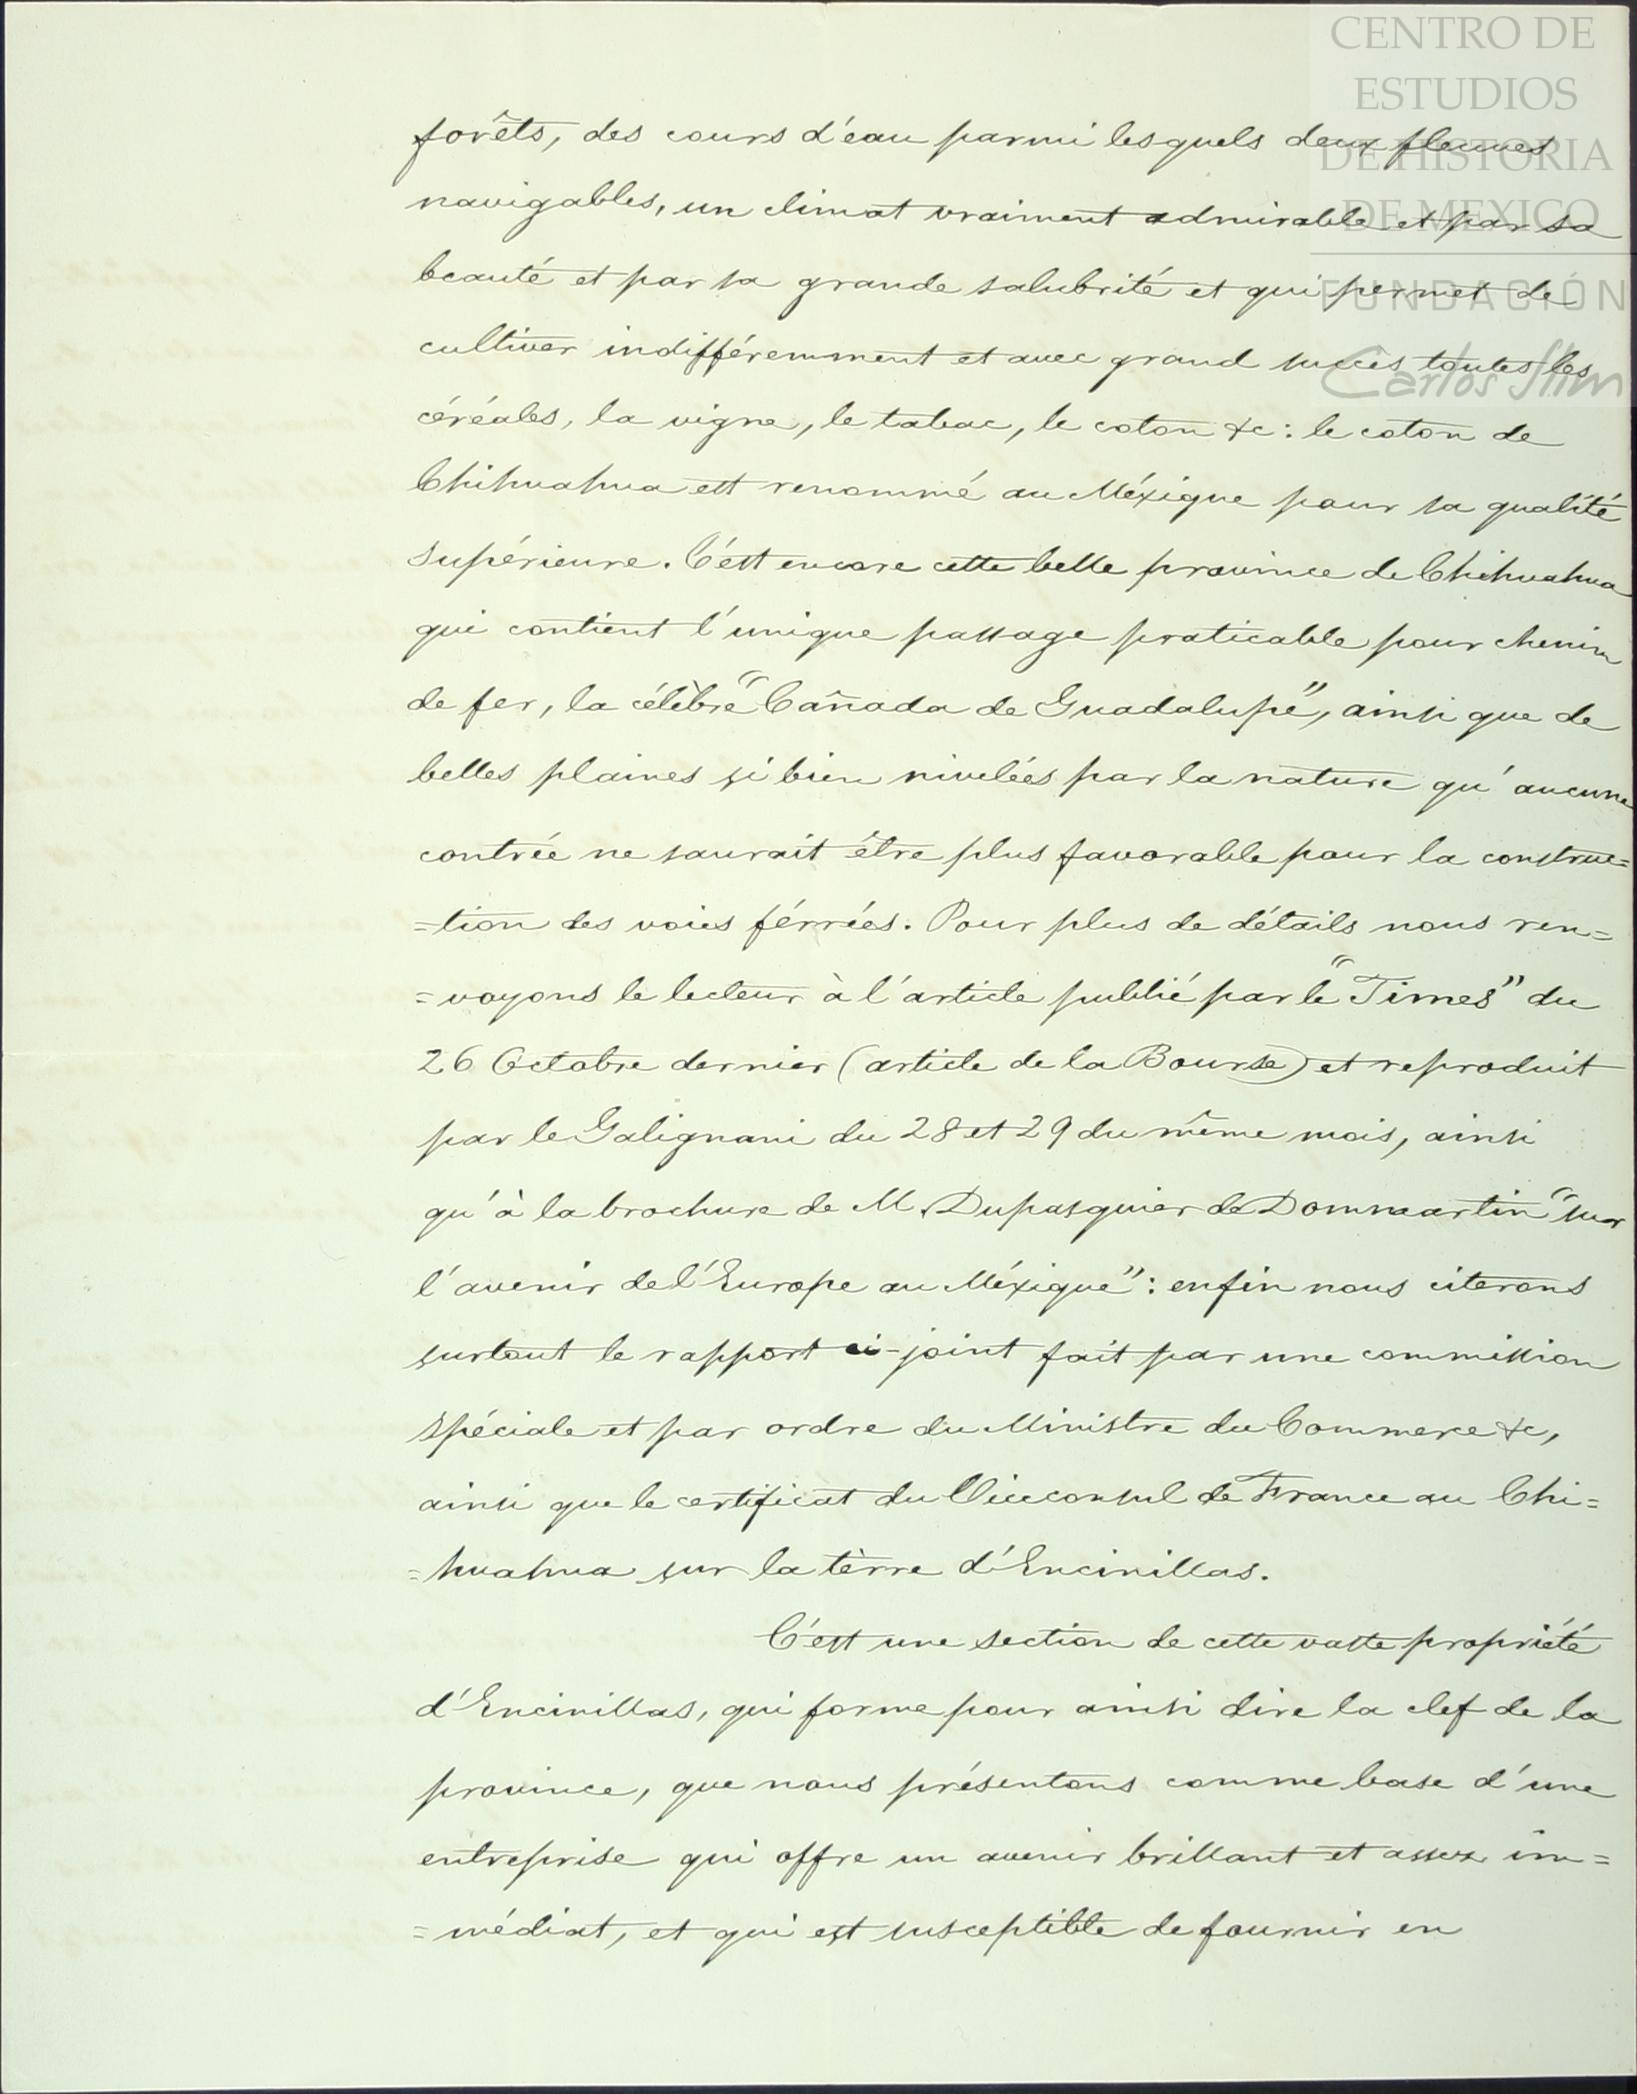 CENTRO DE
ESTUDIOS
DE HISTORIA
DE MEXICO
FUNDACIÓN
Carlos Slim
forêts, des cours d'eau parmi lesquels deux fleuves
navigables, un climat vraiment admirable et par sa
beauté et par sa grande salubrité et qui permet de
cultiver indifféremment et avec grand succès toutes les
céréales, la vigne, le tabac, le coton &c: le coton de
Chihuahua est renommé au Méxique pour sa qualité
supérieure. C'est encore cette belle province de Chihuahua
qui contient l'unique passage praticable pour chemin
de fer, la célèbre "Cañada de Guadalupe", ainsi que de
belles plaines si bien nivelées par la nature qu'aucune
contrée ne saurait être plus favorable pour la construc=
=tion des voies férrées. Pour plus de détails nous ren=
=voyons le lecteur à l'article publié par le "Times" du
26 Octobre dernier (article de la Bourse) et reproduit
par le Galignani du 28 et 29 du même mois, ainsi
qu'à la brochure de M. Dupasquier de Dommartin "sur
l'avenir de l'Europe au Méxique": enfin nous citerons
surtout le rapport ci-joint fait par une commission
spéciale et par ordre du Ministre du Commerce &c,
ainsi que le certificat du Viceconsul de France au Chi=
=huahua sur la tèrre d'Encinillas.
C'est une section de cette vaste propriété
d'Encinillas, qui forme pour ainsi dire la clef de la
province, que nous présentons comme base d'une
entreprise qui offre un avenir brillant et assez im=
=médiat, et qui est susceptible de fournir en